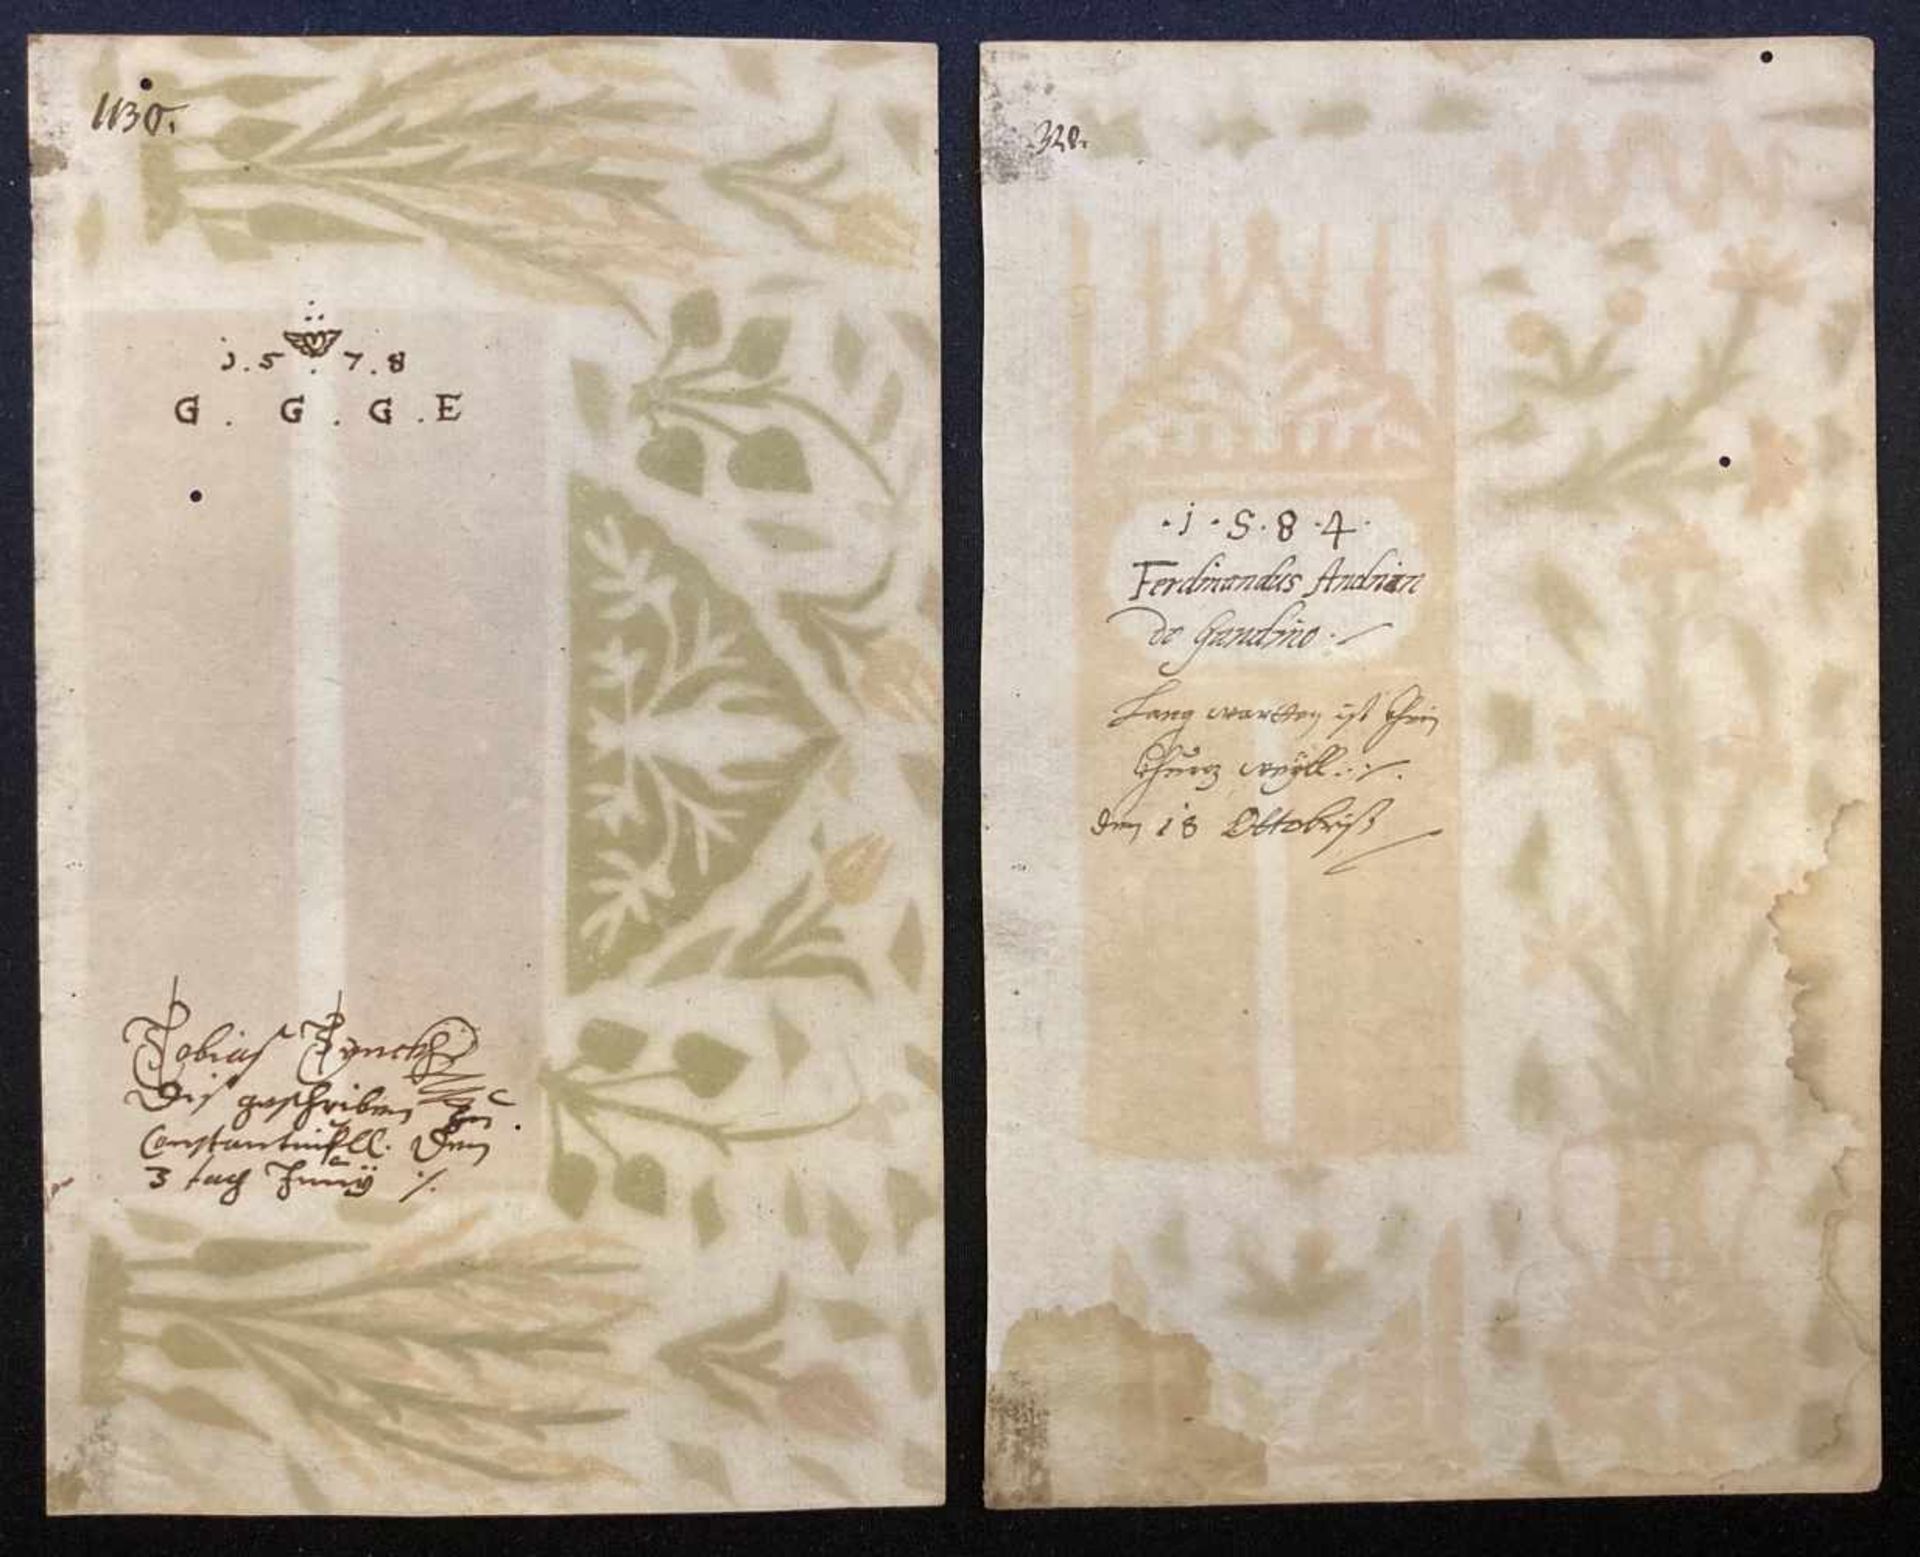 1130.
1.5.7.8
G. G. G. E
Tobias
Dis geschriben zu
Constantinopell. Den
3 tag Juny
328.
.1.5.8.4.
Ferdinandus Andrian
de Gandino.
Lang warten ist Khein
Khurz weyll
den 18 Ottobriß